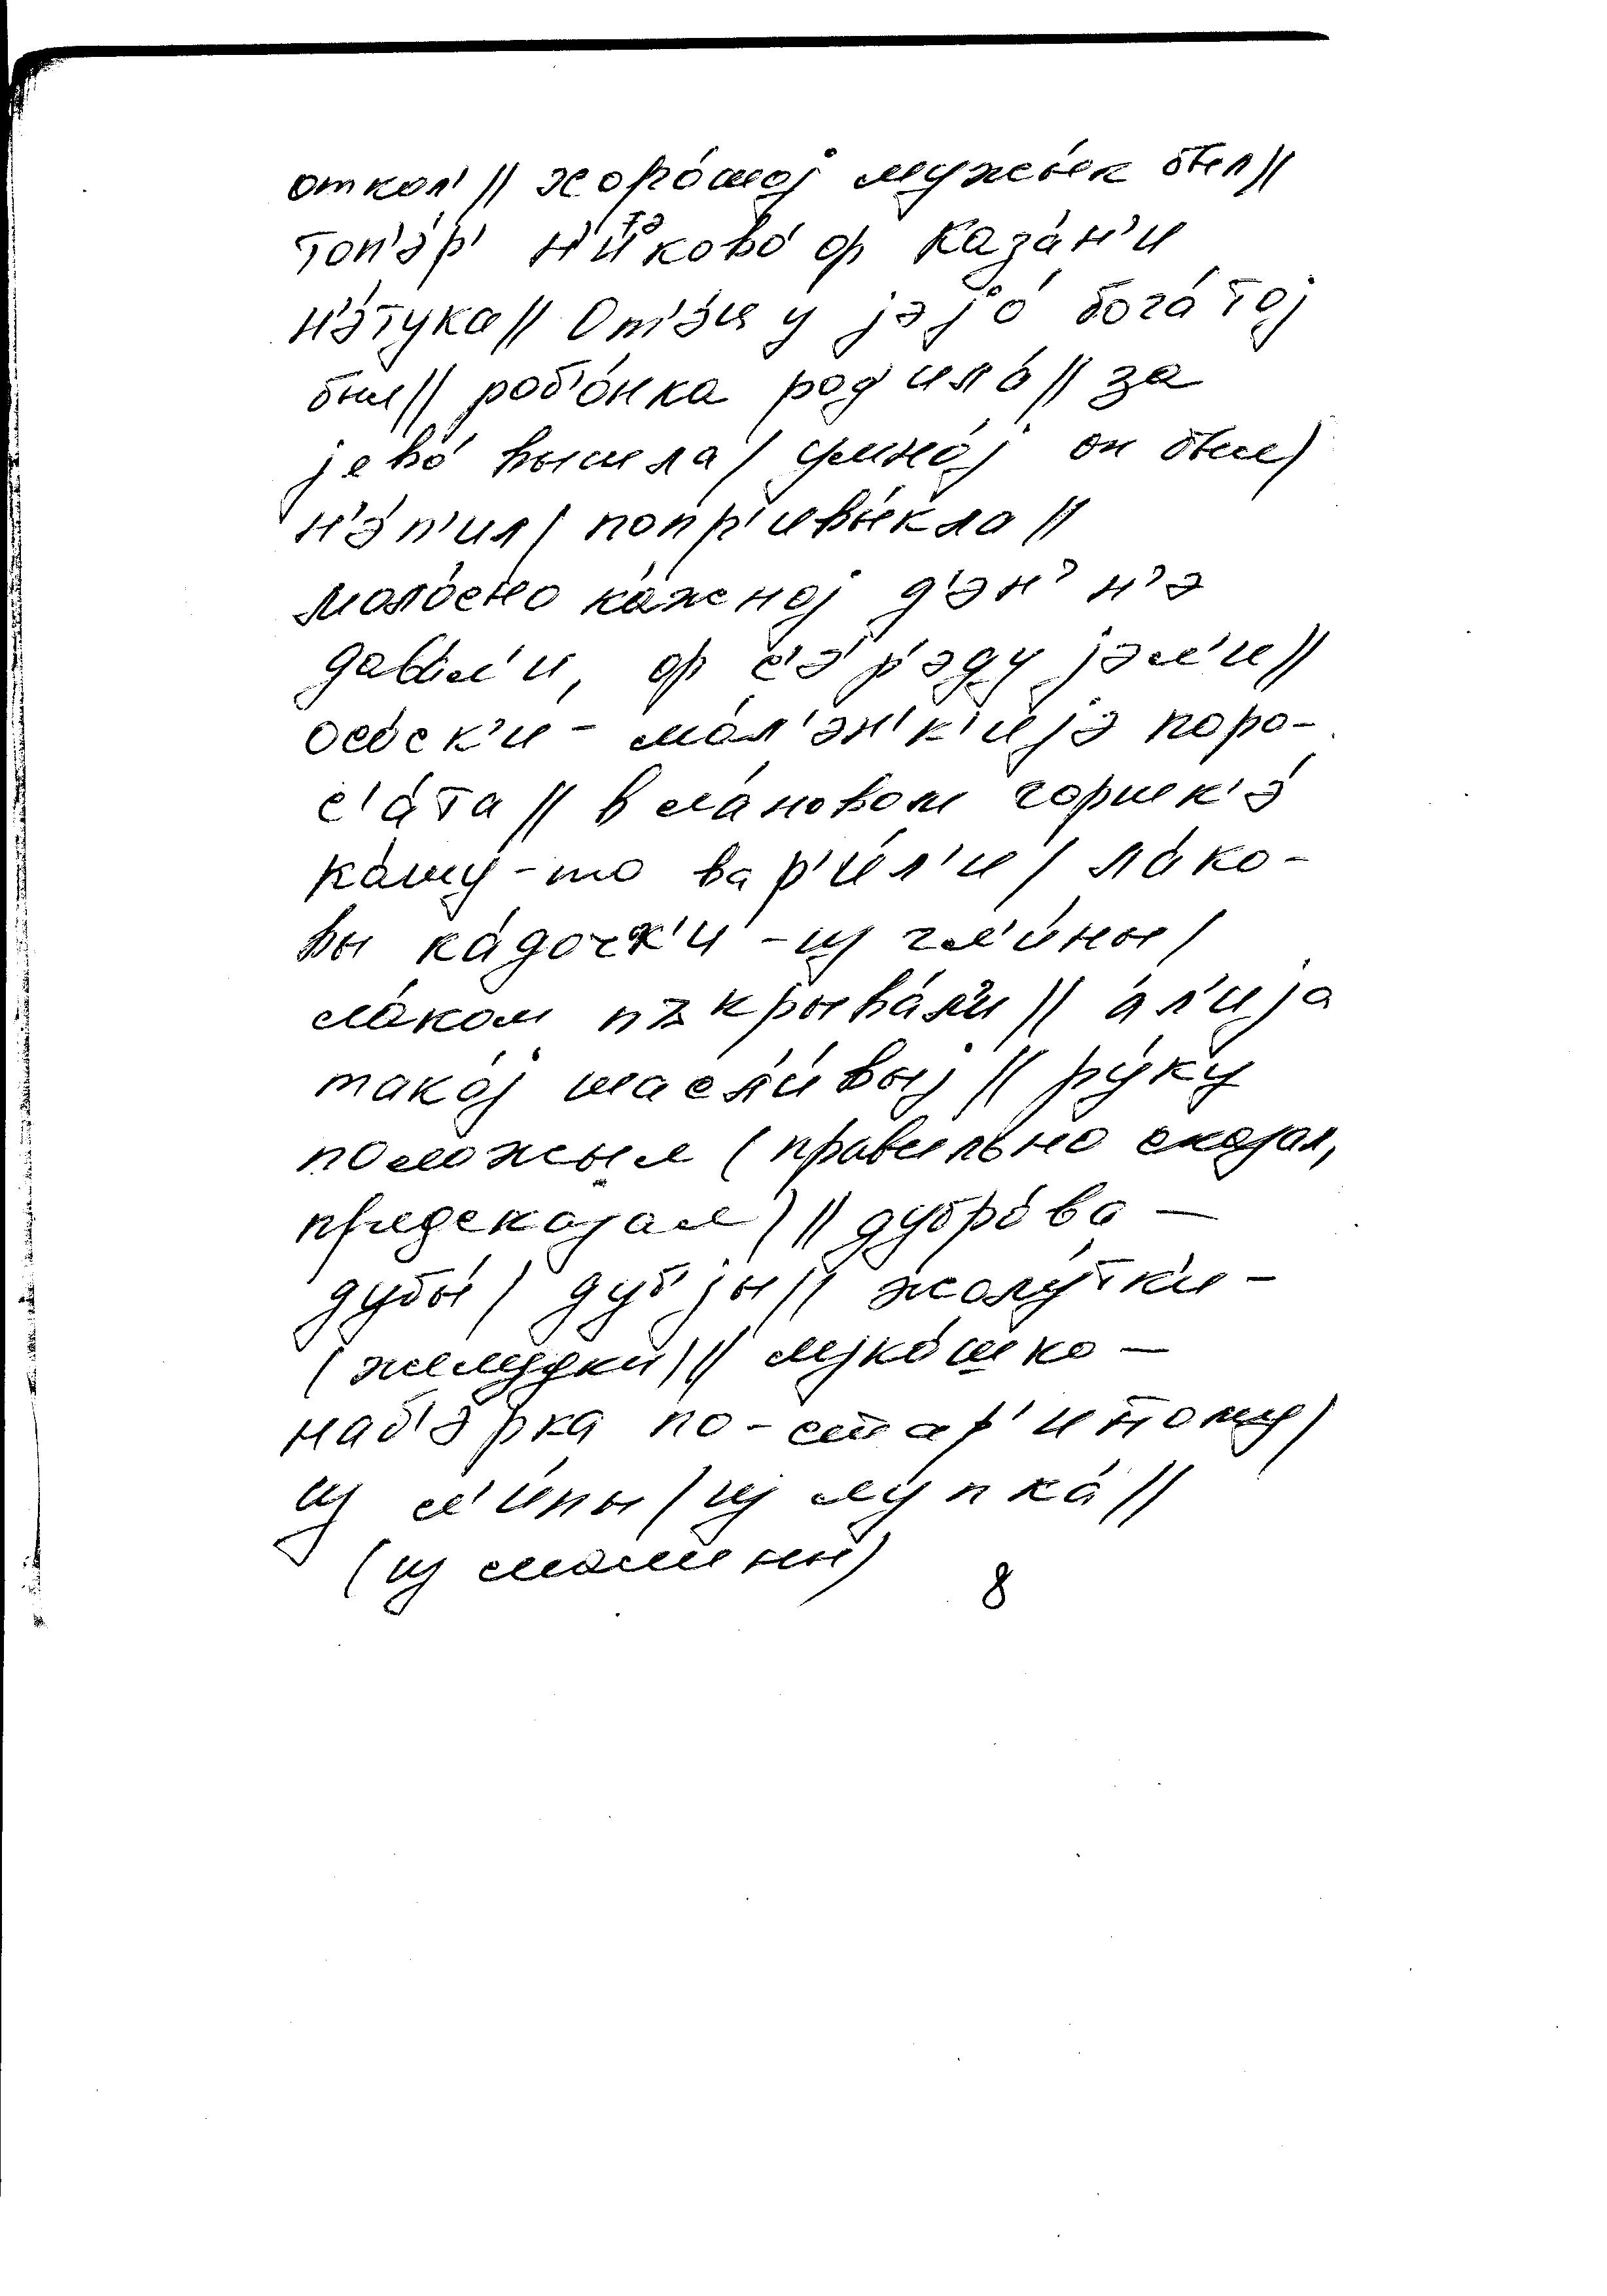 откол' // хоро́шој мужы́к был //
топ'э́р' н'и́ково́ ф Каза́н'и
н'э́тука // От'э́ц у јэјо́ бога́тој
был // роб'о́нка род'ила́ // за
јево́ вышла / умно́ј он был /
н'э́ п'ил / попр'ивы́кла //
моло́сно ка́жној д'эн' н'э
дава́л'и, ф с'э́р'эду јэл'и //
осо́ск'и - ма́л'эн'к'ијэ поро-
с'а́та // в ла́новом горшк'э́
ка́шу-то вар'и́л'и / ла́ко-
вы ка́дочк'и - из гл'и́ны /
ла́ком пъкрыва́л'и // а́л'и ја
тако́ј шасл'и́выј // ру́ку
положыл (правильно сказал,
предсказал) // дубро́ва —
дубы́ / дуб'јы // жолу́тк'и -
(желудки) // лукошко —
наб'э́рка по-стар'и́нному /
из л'и́пы / из лупка́ //
8